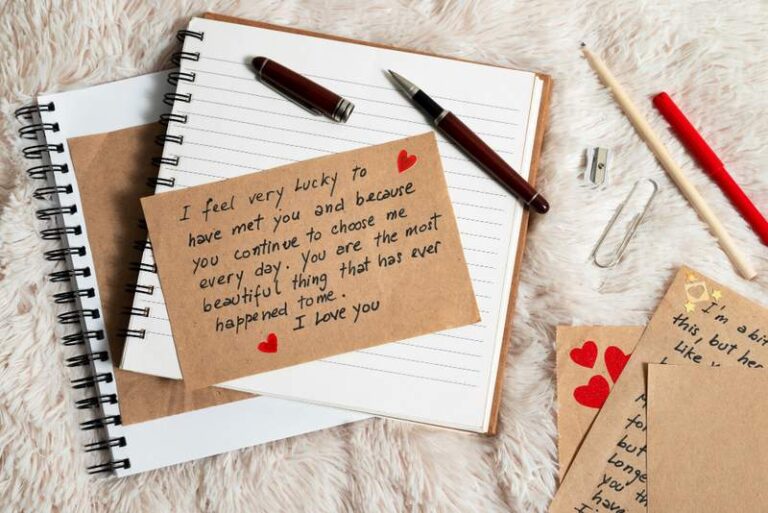 I feel very Lucky to
have met you and because
you continue to choose me
every day. You are the most
beautiful thing that has ever
happened to me.
I Love you
I'm a bit
this, but her
Like y
M
for
but
Longe
you th
have